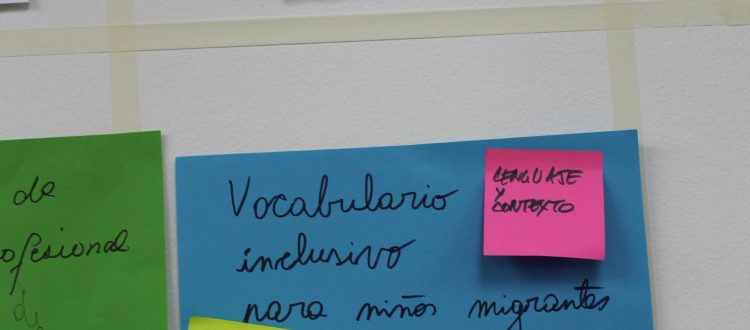 de
ofesional
de
Vocabulario
inclusivo
para niños migrantes
LENGUAJE
Y
CONTEXTO